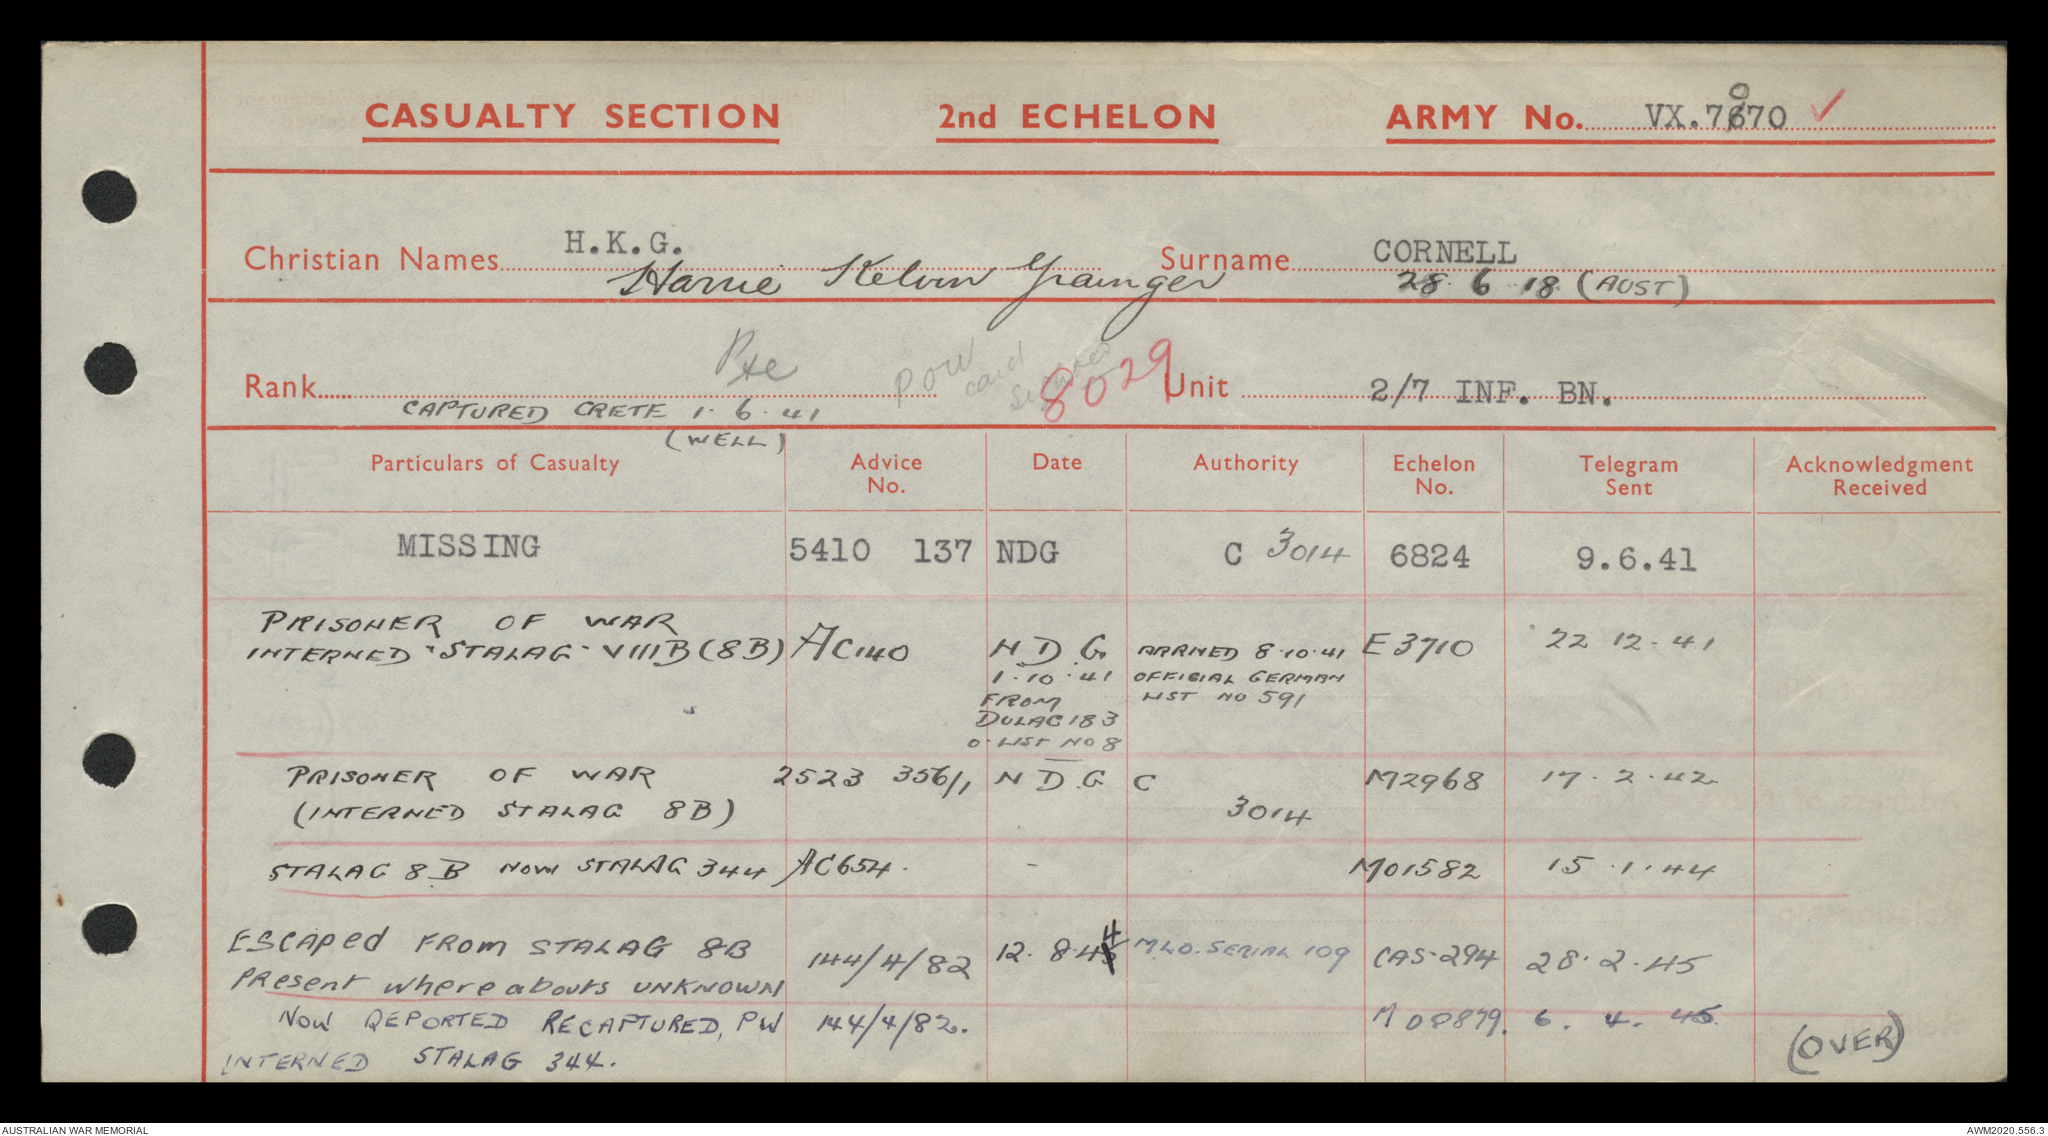 CASUALTY SECTION 2nd ECHELON ARMY No. VX.7070
Christian Names H.K.G. Surname CORNELL
Harrie Kelvin Grainger 28 6 18 (AUST)
Rank Pte POW card 8029 Unit 2/7 INF. BN.
CAPTURED CRETE 1. 6. 41
(WELL)
Particulars of Casualty Advice No. Date Authority Echelon No. Telegram Sent Acknowledgment Received
MISSING 5410 137 NDG C 3014 6824 9.6.41
PRISONER OF WAR
INTERNED "STALAG" VIIIB (8B) AC140 N D.G ARRIVED 8.10.41 E3710 22 12.41
1.10.41 OFFICIAL GERMAN
FROM LIST NO 591
DULAG 183
O. LIST NO 8
PRISONER OF WAR 2523 356/1 N D.G C M2968 17.2.42
(INTERNED STALAG 8B) 3014
STALAG 8B NOW STALAG 344 AC654. - M01582 15.1.44
ESCAPED FROM STALAG 8B 144/4/82 12.8.44 MLO.SERIAL 109 CAS.294 28.2.45
PRESENT whereabouts UNKNOWN
NOW REPORTED RECAPTURED, PW 144/4/82. M08879. 6. 4. 45
INTERNED STALAG 344. (OVER)
AUSTRALIAN WAR MEMORIAL AWM2020.556.3